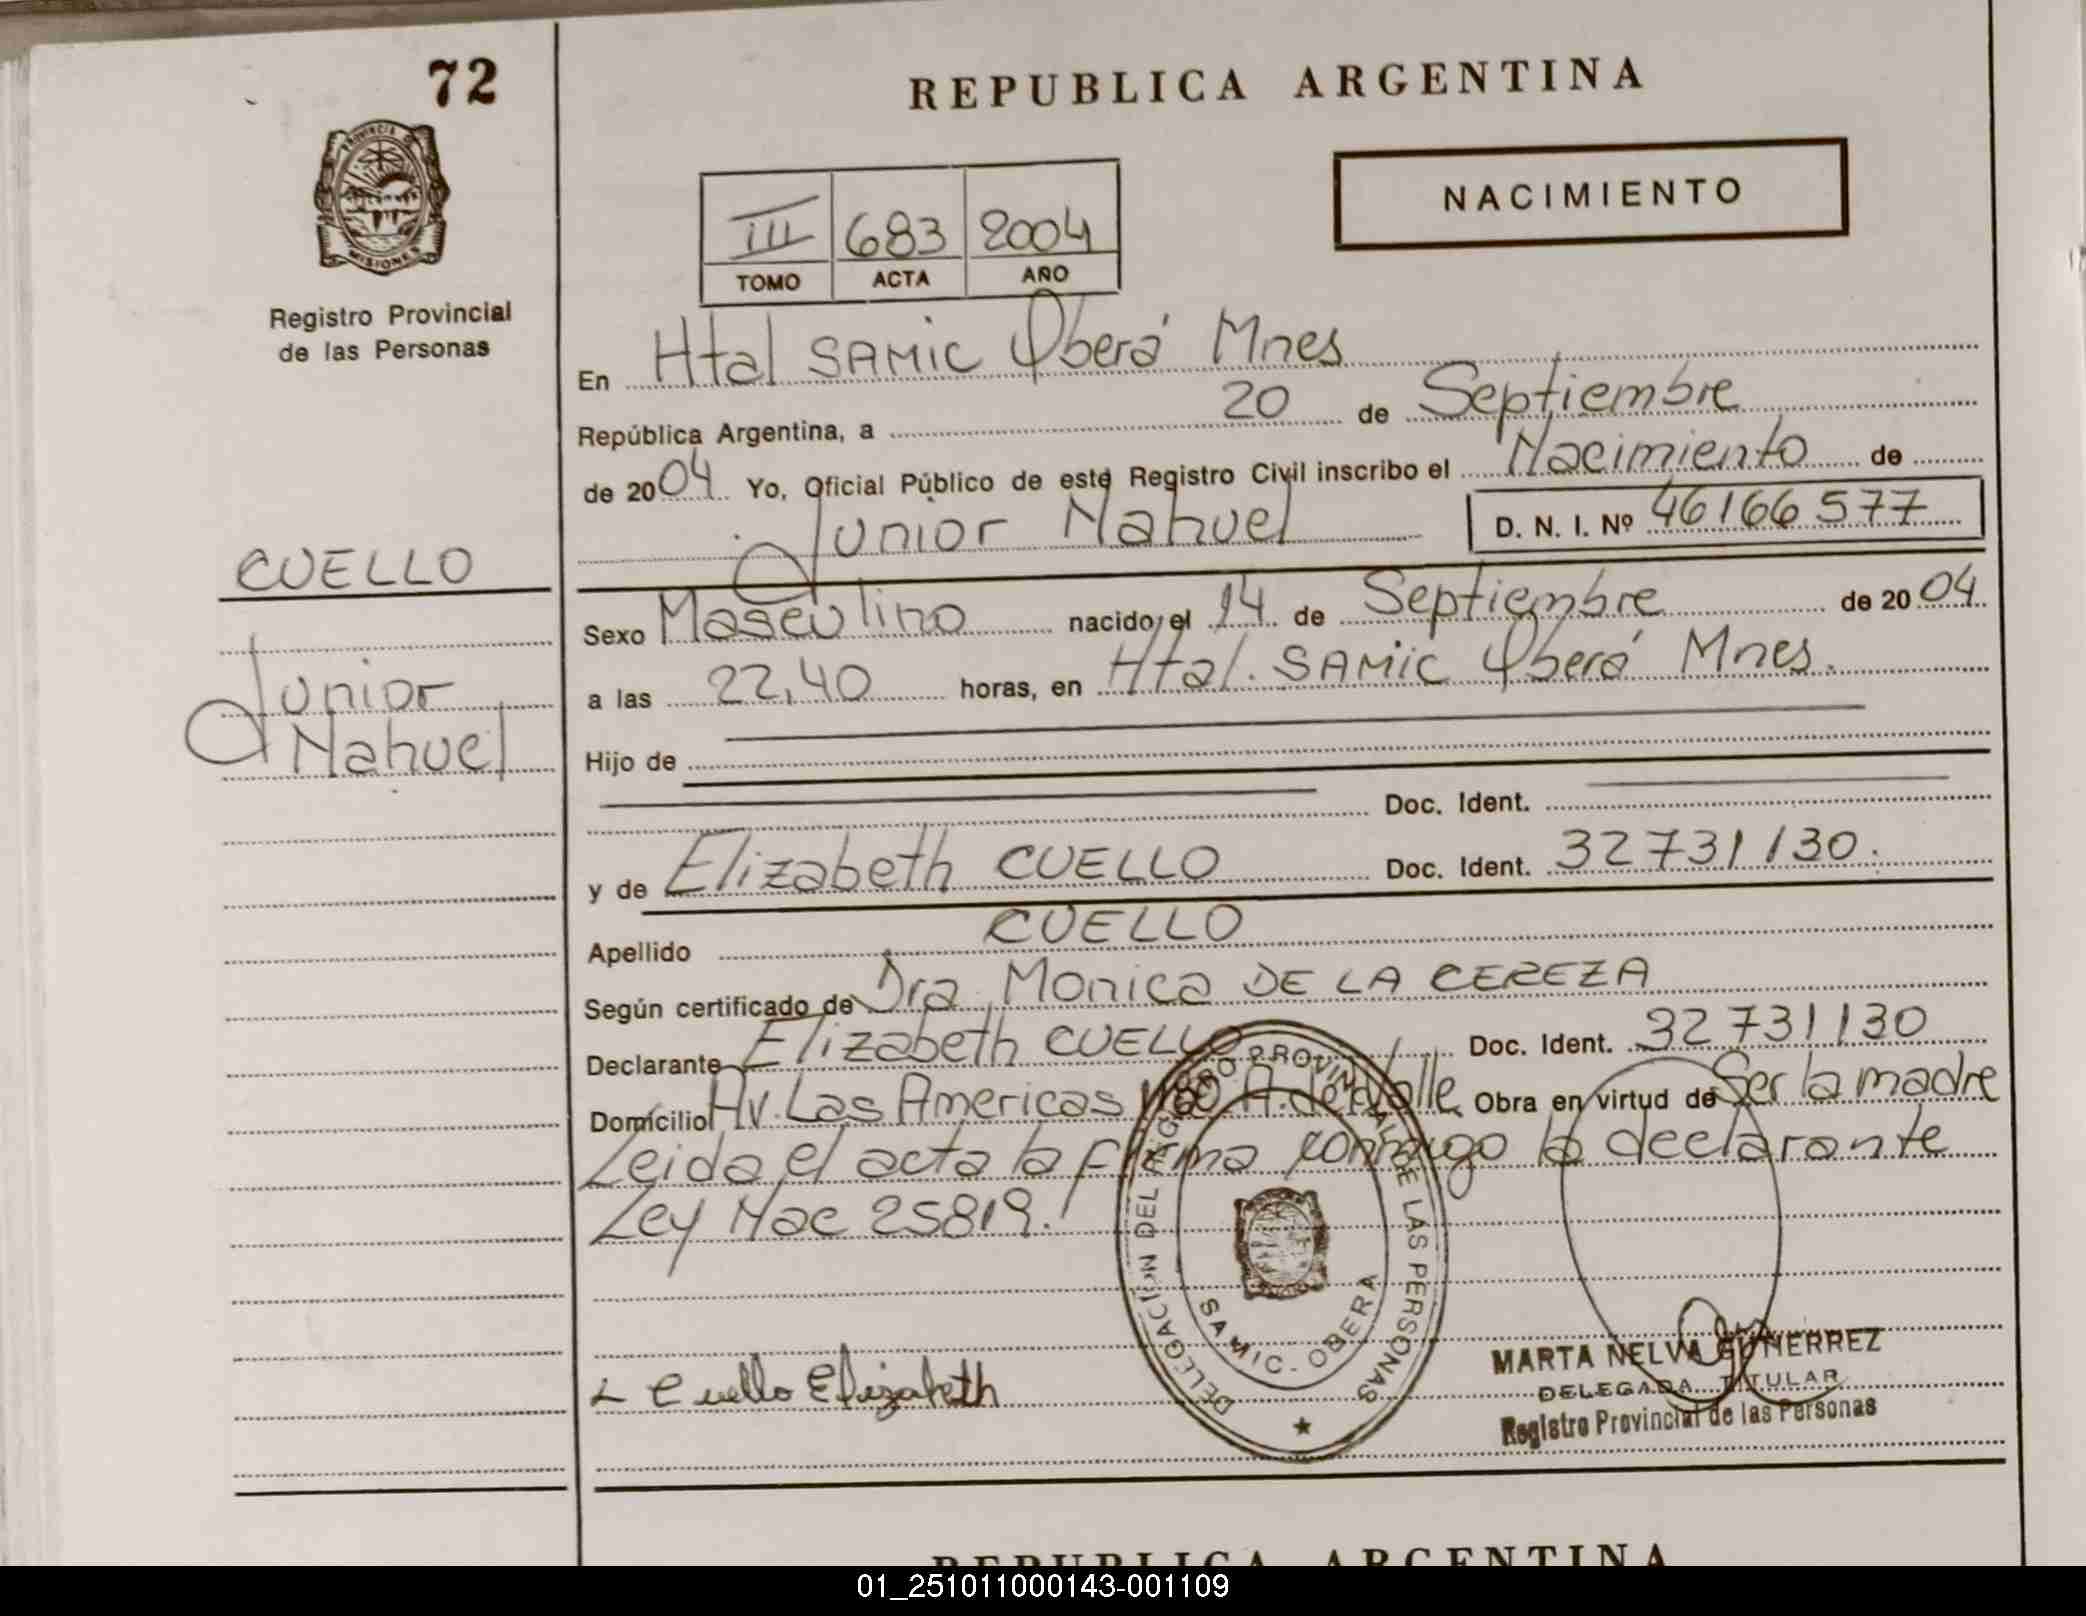 72
REPUBLICA ARGENTINA
PROVINCIA DE
MISIONES
Registro Provincial
de las Personas
NACIMIENTO
III 683 2004
TOMO ACTA AÑO
En Htal SAMIC Oberá Mnes
República Argentina, a 20 de Septiembre
de 2004 Yo, Oficial Público de este Registro Civil inscribo el Nacimiento de
Junior Nahuel D. N. I. Nº 46166577
CUELLO
Junior
Nahuel
Sexo Masculino nacido el 14 de Septiembre de 2004
a las 22,40 horas, en Htal. SAMIC Oberá Mnes.
Hijo de
Doc. Ident.
y de Elizabeth CUELLO Doc. Ident. 32731130.
Apellido CUELLO
Según certificado de Dra. Monica DE LA CEREZA
Declarante Elizabeth CUELLO Doc. Ident. 32731130
Domicilio Av. Las Americas A. del Valle Obra en virtud de Ser la madre
Leida el acta la firma conmigo la declarante
Ley Nac 25819.
Cuello Elizabeth
DELEGACION DEL REGISTRO PROVINCIAL DE LAS PERSONAS
SAMIC - OBERA
MARTA NELVA GUTIERREZ
DELEGADA TITULAR
Registro Provincial de las Personas
REPUBLICA ARGENTINA
01_251011000143-001109